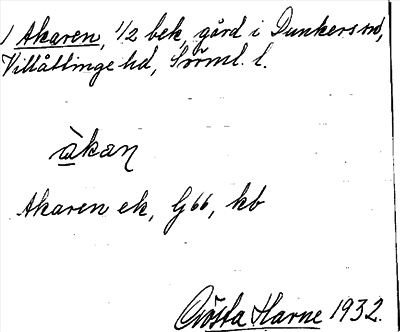 1 Akaren, 1/2 bek, gård i Dunkers sn,
Villåttinge hd, Sörml. l.
àkaŋ
Akaren ek, G66, kb
Gösta Harne 1932.